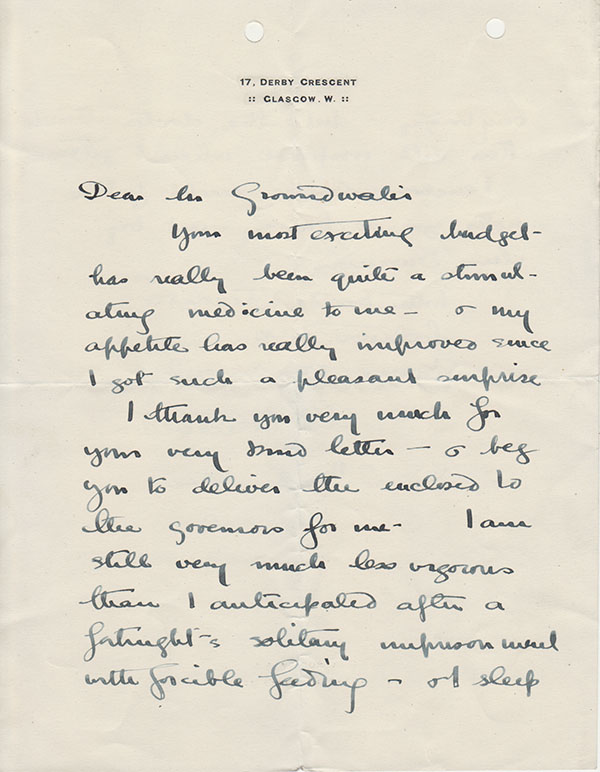 17, DERBY CRESCENT
:: GLASGOW. W. ::
Dear Mr Groundwater
Your most exciting budget
has really been quite a stimul-
ating medicine to me - & my
appetite has really improved since
I got such a pleasant surprise
I thank you very much for
your very kind letter - & beg
you to deliver the enclosed to
the governors for me - I am
still very much less vigorous
than I anticipated after a
fortnight's solitary imprisonment
with forcible feeding - & I sleep